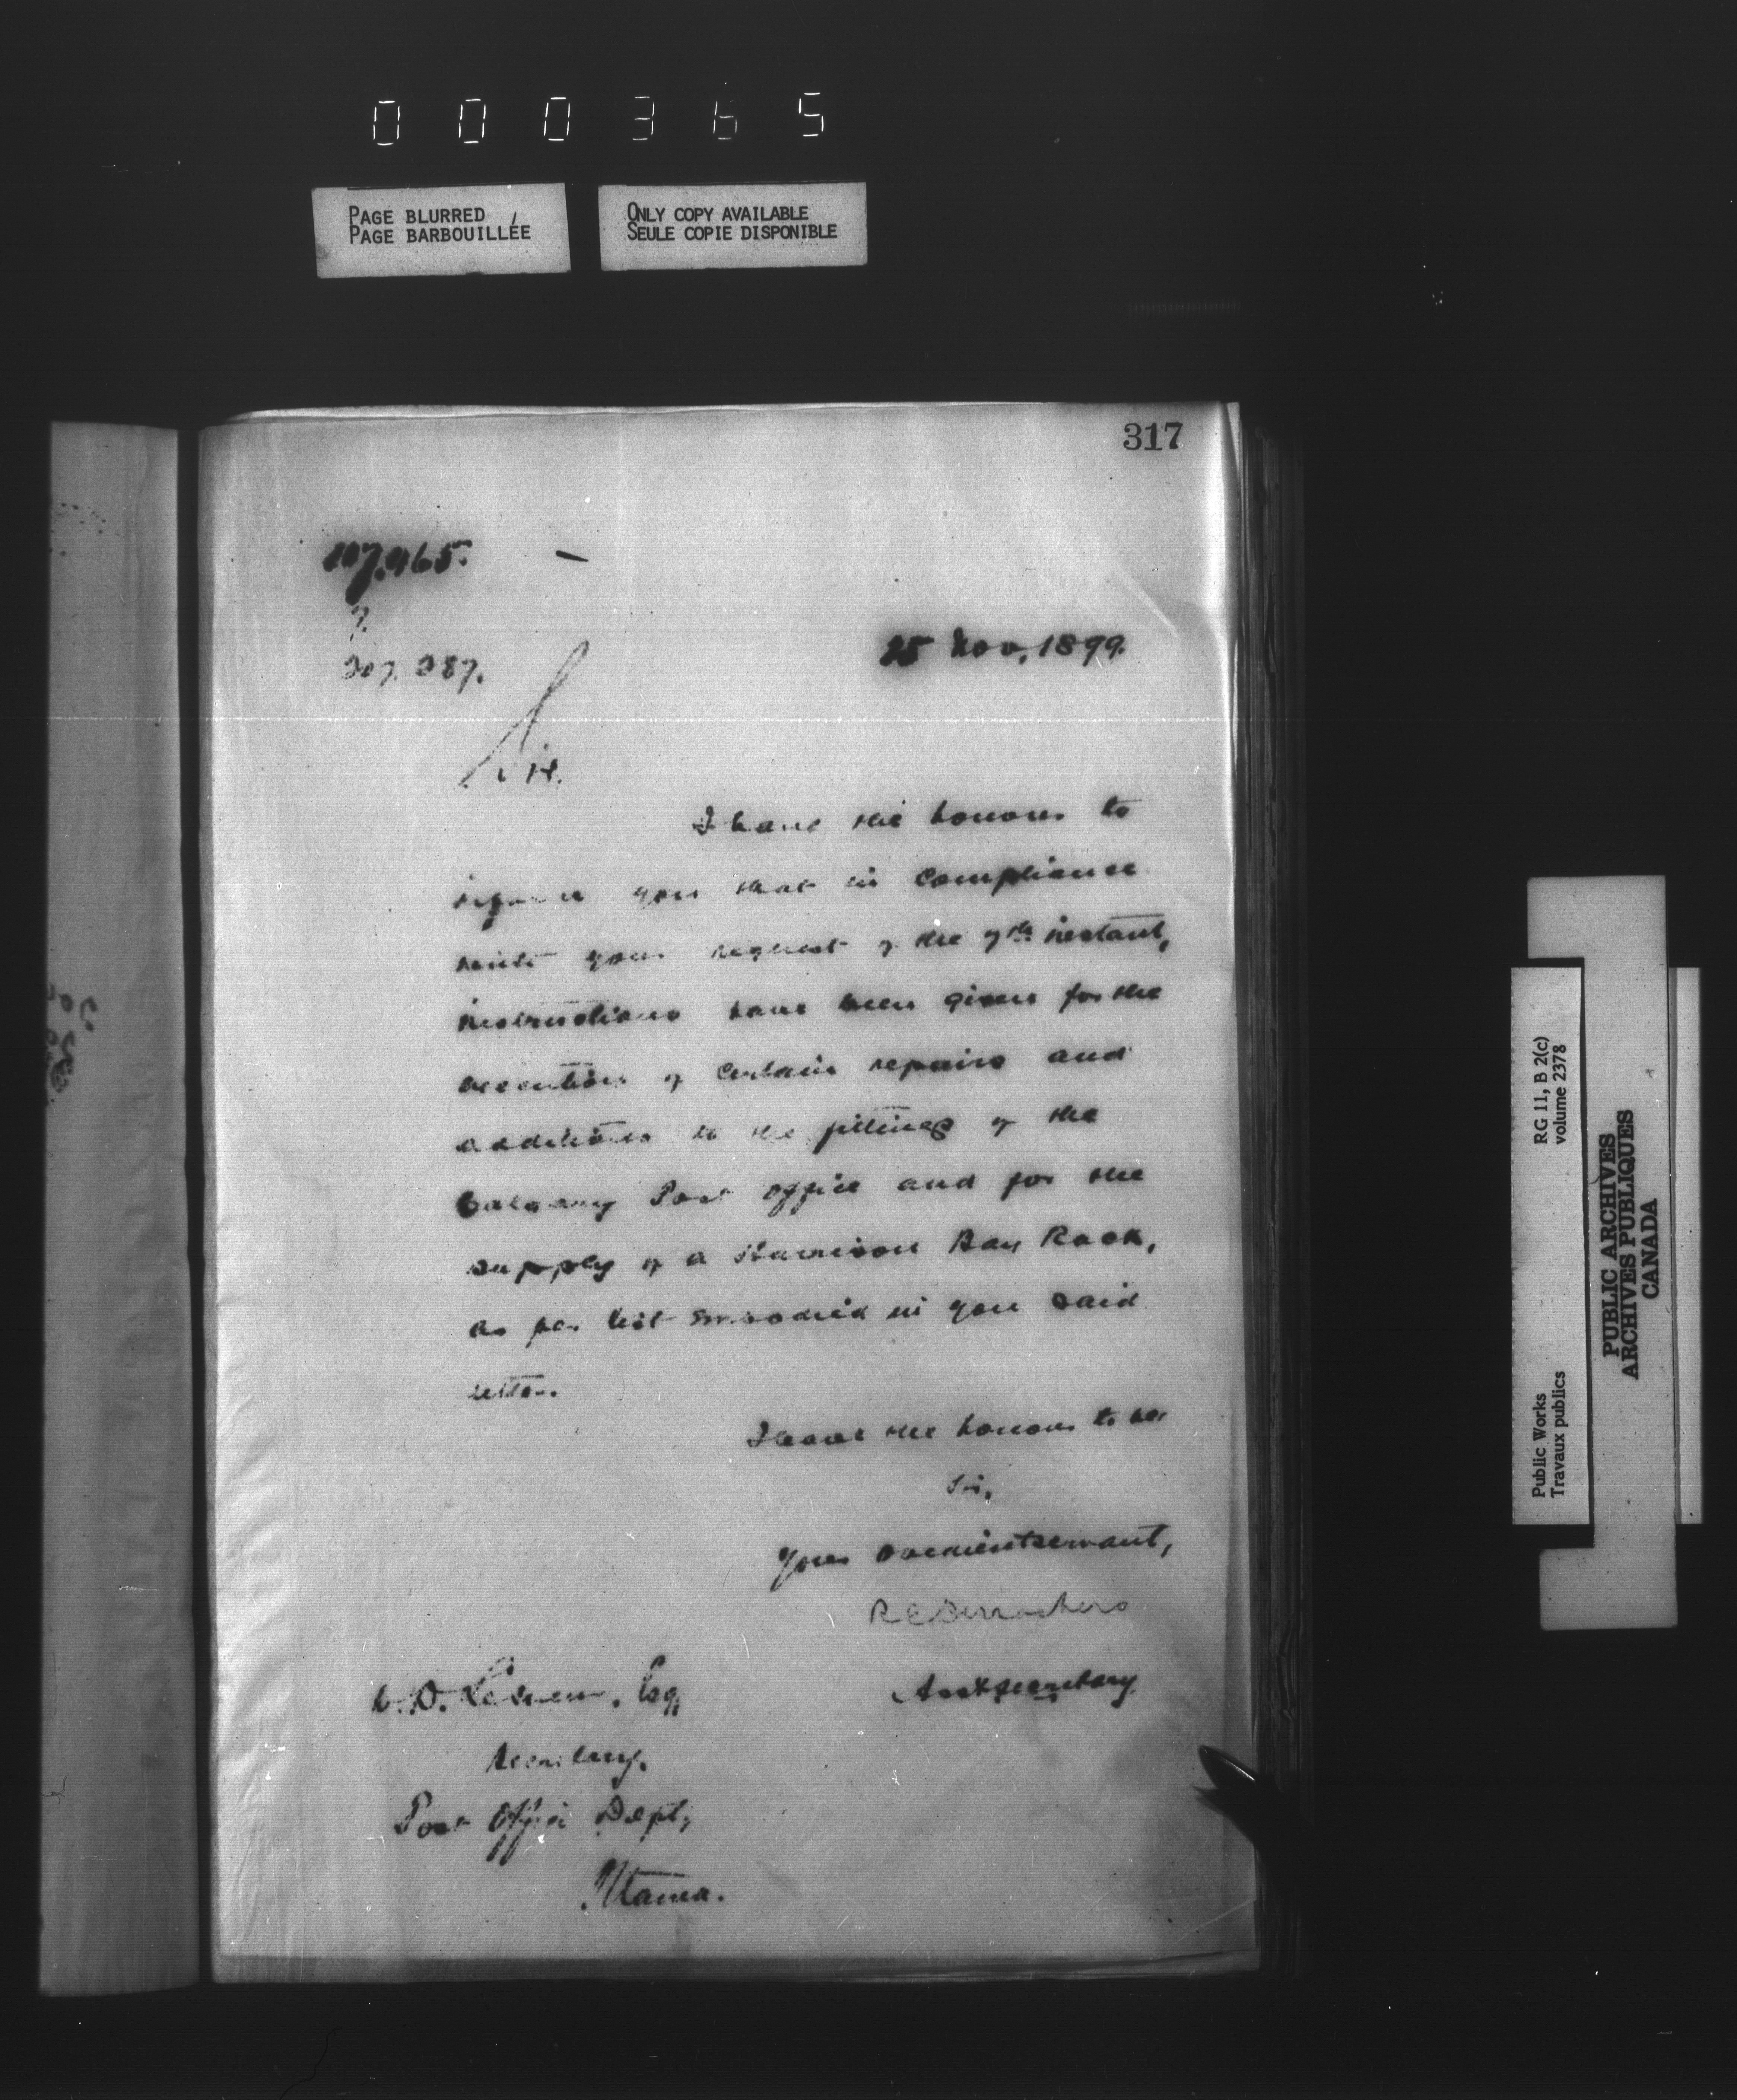 000365
PAGE BLURRED
PAGE BARBOUILLÉE
ONLY COPY AVAILABLE
SEULE COPIE DISPONIBLE
317
107.965.
207.387.
25 Nov, 1899.
Sir.
I have the honour to
inform you that in compliance
with your request of the 7th instant,
instructions have been given for the
execution of certain repairs and
additions to the fittings of the
Calgary Post Office and for the
supply of a Harrison Bag Rack,
as per list embodied in your said
letter.
I have the honour to be,
Sir,
Your obedient servant,
R C Desrochers
Asst Secretary
W. D. LeSueur, Esq,
Secretary.
Post Office Dept,
Ottawa.
RG 11, B 2(c)
volume 2378
Public Works
Travaux publics
PUBLIC ARCHIVES
ARCHIVES PUBLIQUES
CANADA